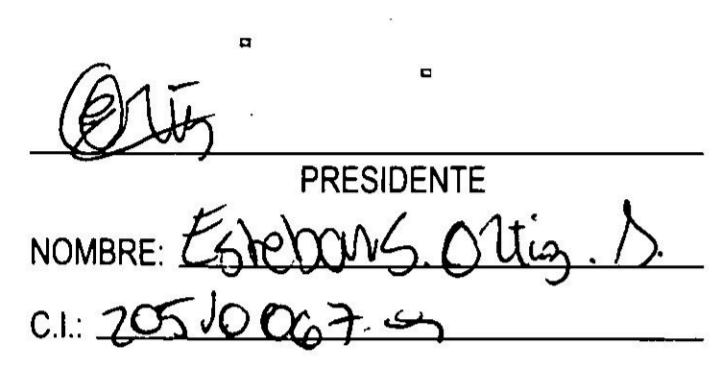 Ortiz
PRESIDENTE
NOMBRE: Esteban S. Ortiz . D.
C.I.: 20510067-5